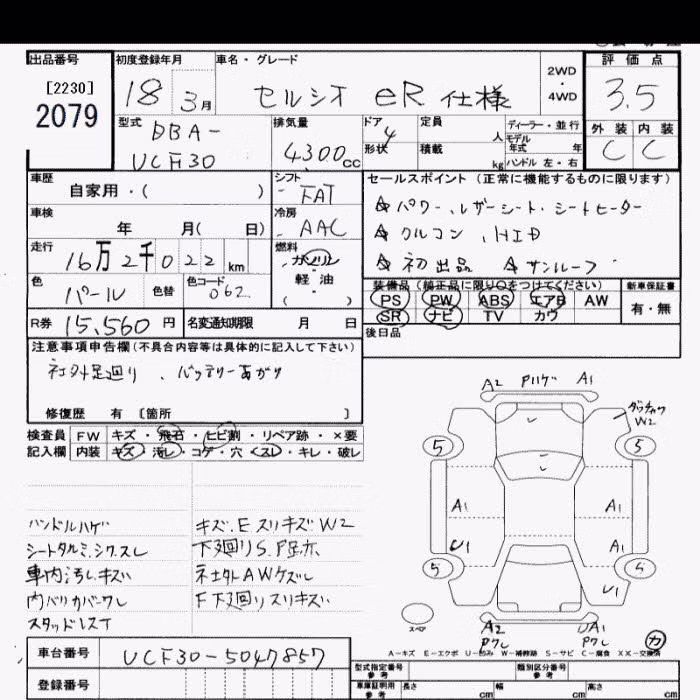 出品番号 初度登録年月 車名・グレード 評価点
[2230]
2079
18 3月 セルシオ eR仕様 2WD・4WD 3.5
型式 DBA- 排気量 ドア 4 定員 人 ディーラー・並行 外装 内装
UCF30 4300cc 形状 積載 kg モデル年式 年 ハンドル 左・右 C C
車歴 シフト セールスポイント (正常に機能するものに限ります)
自家用・( ) FAT ☆パワー、レザーシート・シートヒーター
車検 冷房
年 月( 日) AAC ☆クルコン、HID
走行 燃料
16万2千022km ガソリン ☆初出品 ☆サンルーフ
色 色替 色コード 軽油 装備品 (純正品に限り○をつけてください) 新車保証書
パール 062 ( ) PS PW ABS エアB AW 有・無
R券 15,560円 名変通知期限 月 日 SR ナビ TV カワ
後日品
注意事項申告欄 (不具合内容等は具体的に記入して下さい)
社外足廻り、バッテリーあがり
修復歴 有 〔箇所 〕
検査員 FW キズ・飛石・ヒビ割・リペア跡・×要
記入欄 内装 キズ・汚レ・コゲ・穴・スレ・キレ・破レ
A2 Pハゲ A1
W2
5 5
A1 A1
U1 A1
5 5
U1
スペア
A2 UA1
Pワレ Pワレ
カ
ハンドルハゲ キズ.E.スリキズW2
シートタルミ.シワ.スレ 下廻りS.
車内汚レ.キズ 社外AWケズレ
内バリカバーワレ F下廻りスリキズ
スタッドレスT
A-キズ E-エクボ U-凹み W-補修跡 S-サビ C-腐食 XX-交換済
車台番号 UCF30-5047857
登録番号
型式指定番号 参考 類別区分番号 参考
車庫証明用 参考 長さ cm 幅 cm 高さ cm